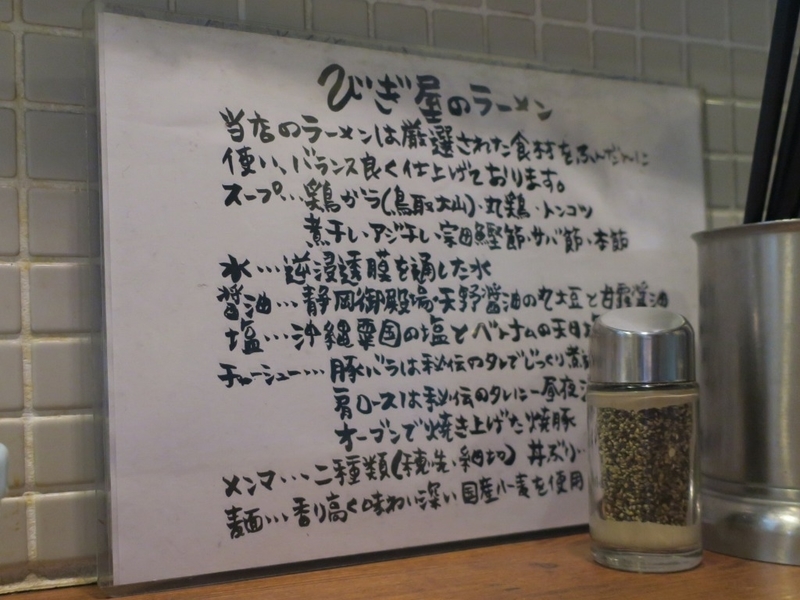 びぎ屋のラーメン
当店のラーメンは厳選された食材をふんだんに
使い、バランス良く仕上げております。
スープ…鶏ガラ(鳥取大山)・丸鶏・トンコツ
煮干し・アジ干し・宗田鰹節・サバ節・本節
水…逆浸透膜を通した水
醤油…静岡御殿場・天野醤油の丸大豆と甘露醤油
塩…沖縄粟国の塩とベトナムの天日塩
チャーシュー…豚バラは秘伝のタレでじっくり煮
肩ロースは秘伝のタレに一昼夜
オーブンで焼き上げた焼豚
メンマ…二種類(穂先・細切) 丼ぶり
麺…香り高く味わい深い国産小麦を使用